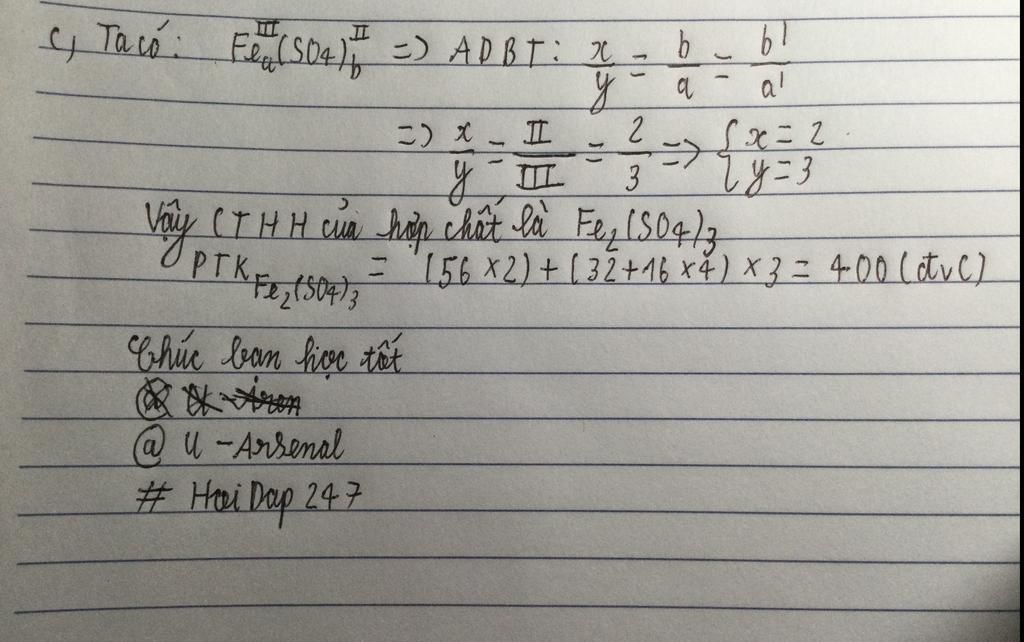 c, Ta có: Feₐᴵᴵᴵ(SO4)ᵇᴵᴵ => ADBT: x/y = b/a = b'/a'
=> x/y = II/III = 2/3 => { x = 2 y = 3
Vậy CTHH của hợp chất là Fe₂(SO4)₃
PTK Fe₂(SO4)₃ = (56 × 2) + (32 + 16 × 4) × 3 = 400 (đvC)
Chúc bạn học tốt
@ U - Arsenal
# HoiDap 247